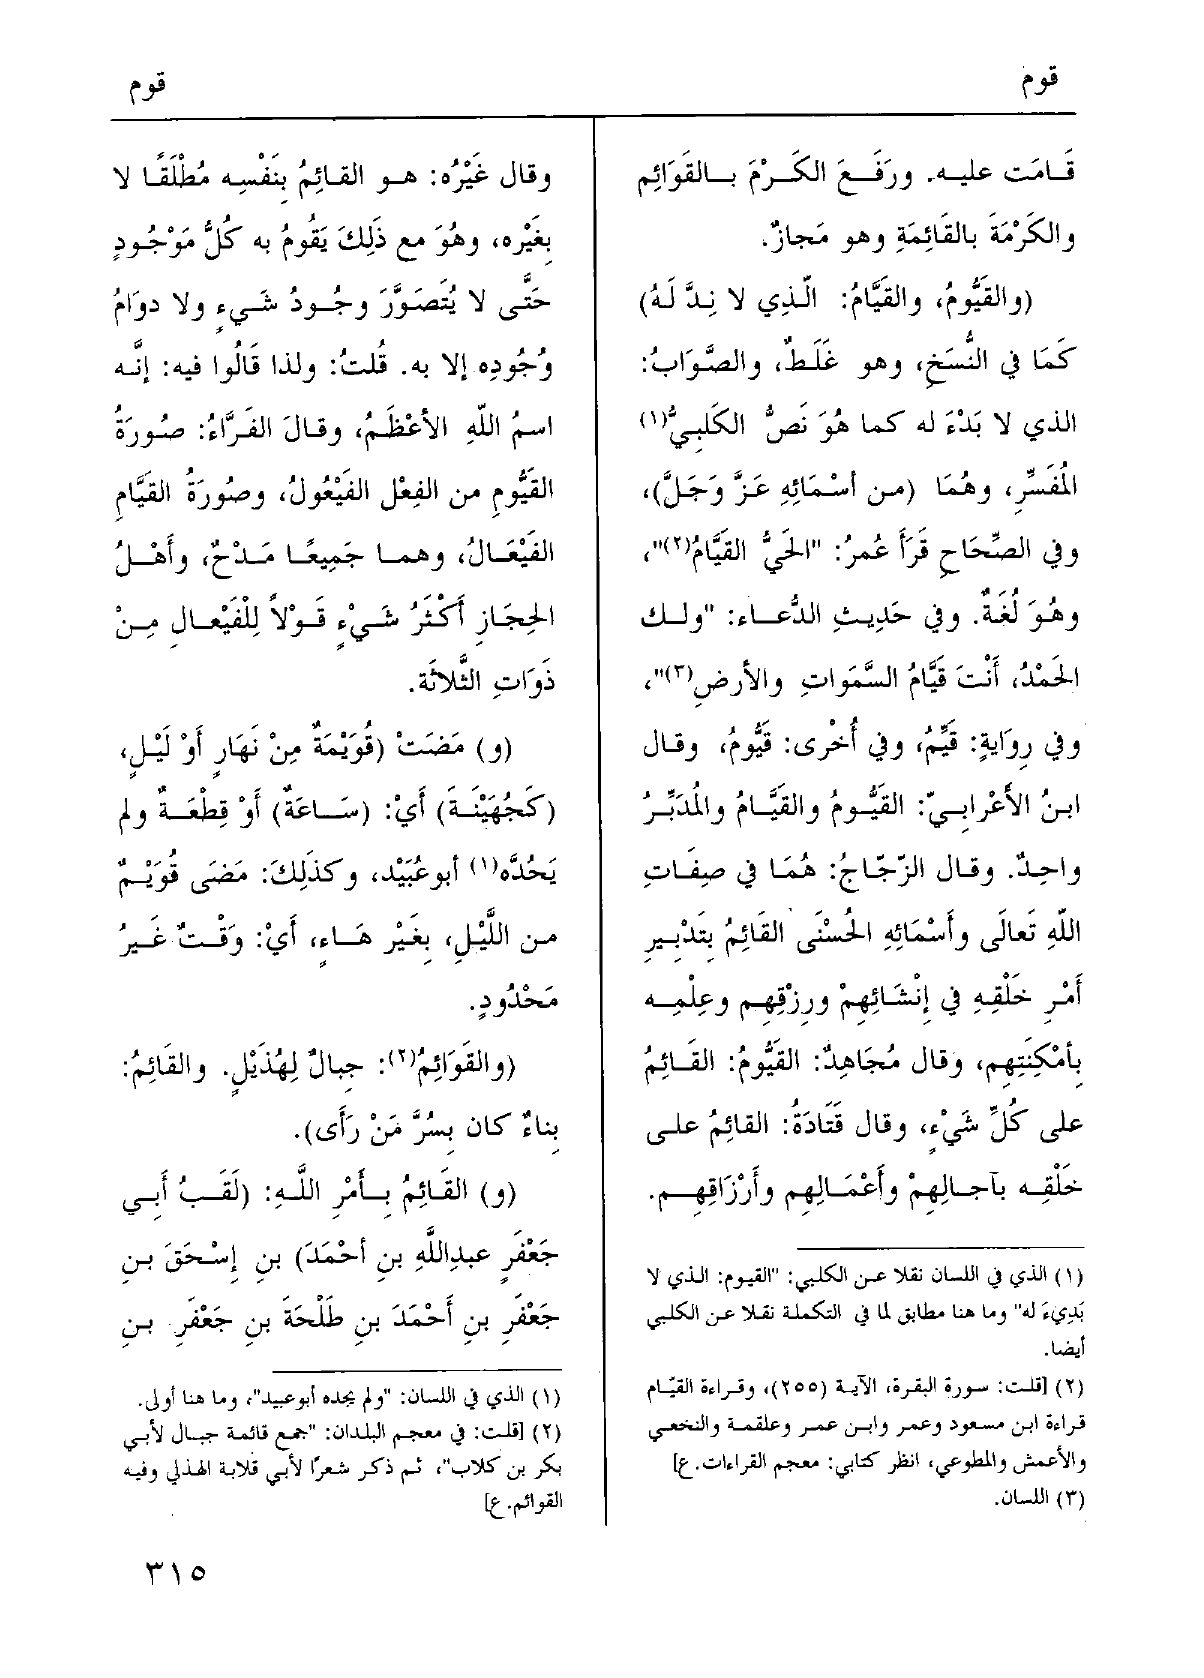 قوم
قوم
قَامَت عليه. ورَفَعَ الكَرْمَ بالقَوَائِم
والكَرْمَةَ بالقَائِمَةِ وهو مَجازٌ.
(والقَيُّومُ، والقَيَّامُ: الَّذِي لا نِدَّ لَهُ)
كَمَا في النُّسَخِ، وهو غَلَطٌ، والصَّوَابُ:
الذي لا بَدْءَ له كما هُوَ نَصُّ الكَلبِيِّ(١)
المُفَسِّرِ، وهُمَا (من أسْمَائِهِ عَزَّ وَجَلَّ)،
وفي الصِّحَاحِ قَرَأَ عُمرُ: "الحَيُّ القَيَّامُ(٢)"،
وهُوَ لُغَةٌ. وفي حَدِيثِ الدُّعَاء: "ولك
الحَمْدُ، أَنْتَ قَيَّامُ السَّمَواتِ والأرضِ(٣)"،
وفي رِوَايةٍ: قَيِّمُ، وفي أُخْرى: قَيُّومُ، وقال
ابنُ الأعْرابيّ: القَيُّومُ والقَيَّامُ والمُدَبِّرُ
واحِدٌ. وقال الزَّجّاج: هُمَا في صِفَاتِ
اللهِ تَعالَى وأسْمَائِهِ الحُسْنَى القَائِمُ بِتَدْبِيرِ
أَمْرِ خَلْقِهِ في إنْشَائِهِمْ ورِزْقِهِم وعِلْمِه
بِأمْكِنَتِهِم، وقال مُجَاهِدٌ: القَيُّومُ: القَائِمُ
على كُلِّ شَيْءٍ، وقال قَتَادَةُ: القَائِمُ على
خَلْقِه بآجالِهِمْ وأَعْمَالِهِم وأَرْزَاقِهِم.
(١) الذي في اللسان نقلا عن الكلبي: "القيوم: الذي لا
بَدِيءَ له" وما هنا مطابق لما في التكملة نقلا عن الكلبي
أيضا.
(٢) [قلت: سورة البقرة، الآية (٢٥٥)، وقراءة القيّام
قراءة ابن مسعود وعمر وابن عمر وعلقمة والنخعي
والأعمش والمطوعي، انظر كتابي: معجم القراءات. ع]
(٣) اللسان.
وقال غَيْرُه: هو القَائِمُ بِنَفْسِه مُطْلَقًا لا
بِغَيْرِه، وهُوَ مع ذَلِكَ يَقُومُ به كُلُّ مَوْجُودٍ
حَتَّى لا يُتَصَوَّرَ وجُودُ شَيءٍ ولا دوَامُ
وُجُودِه إلا به. قُلتُ: ولذا قَالُوا فيه: إنَّه
اسمُ اللهِ الأعْظَمُ، وقالَ الفَرَّاءُ: صُورَةُ
القَيُّومِ من الفِعْل الفَيْعُولُ، وصُورَةُ القَيَّامِ
الفَيْعَالُ، وهما جَمِيعًا مَدْحٌ، وأَهْلُ
الحِجَازِ أَكْثَرُ شَيْءٍ قَوْلاً لِلْفَيْعَالِ مِنْ
ذَوَاتِ الثَّلاثَة.
(و) مَضَتْ (قُوَيْمَةٌ مِنْ نَهَارٍ أَوْ لَيْلٍ،
(كَجُهَيْنَةَ) أَيْ: (سَاعَةٌ) أَوْ قِطْعَةٌ ولم
يَحُدَّه(١) أبوعُبَيْد، وكذَلِكَ: مَضَى قُوَيْمٌ
من اللَّيْلِ، بِغَيْرِ هَاءٍ، أَيْ: وَقْتٌ غَيرُ
مَحْدُودٍ.
(والقَوَائِمُ(٢): جِبالٌ لِهُذَيْلٍ. والقَائِمُ:
بِناءٌ كان بِسُرَّ مَنْ رَأَى).
(و) القَائِمُ بِأَمْرِ اللَّهِ: (لَقَبُ أَبي
جَعْفَرٍ عبدِاللَّهِ بنِ أحْمَدَ) بنِ إسْحَقَ بنِ
جَعْفَرِ بنِ أَحْمَدَ بنِ طَلْحَةَ بنِ جَعْفَرِ بنِ
(١) الذي في اللسان: "ولم يجده أبوعبيد"، وما هنا أولى.
(٢) [قلت: في معجم البلدان: "جمع قائمة جبال لأبي
بكر بن كلاب"، ثم ذكر شعرًا لأبي قلابة الهذلي وفيه
القوائم. ع]
٣١٥